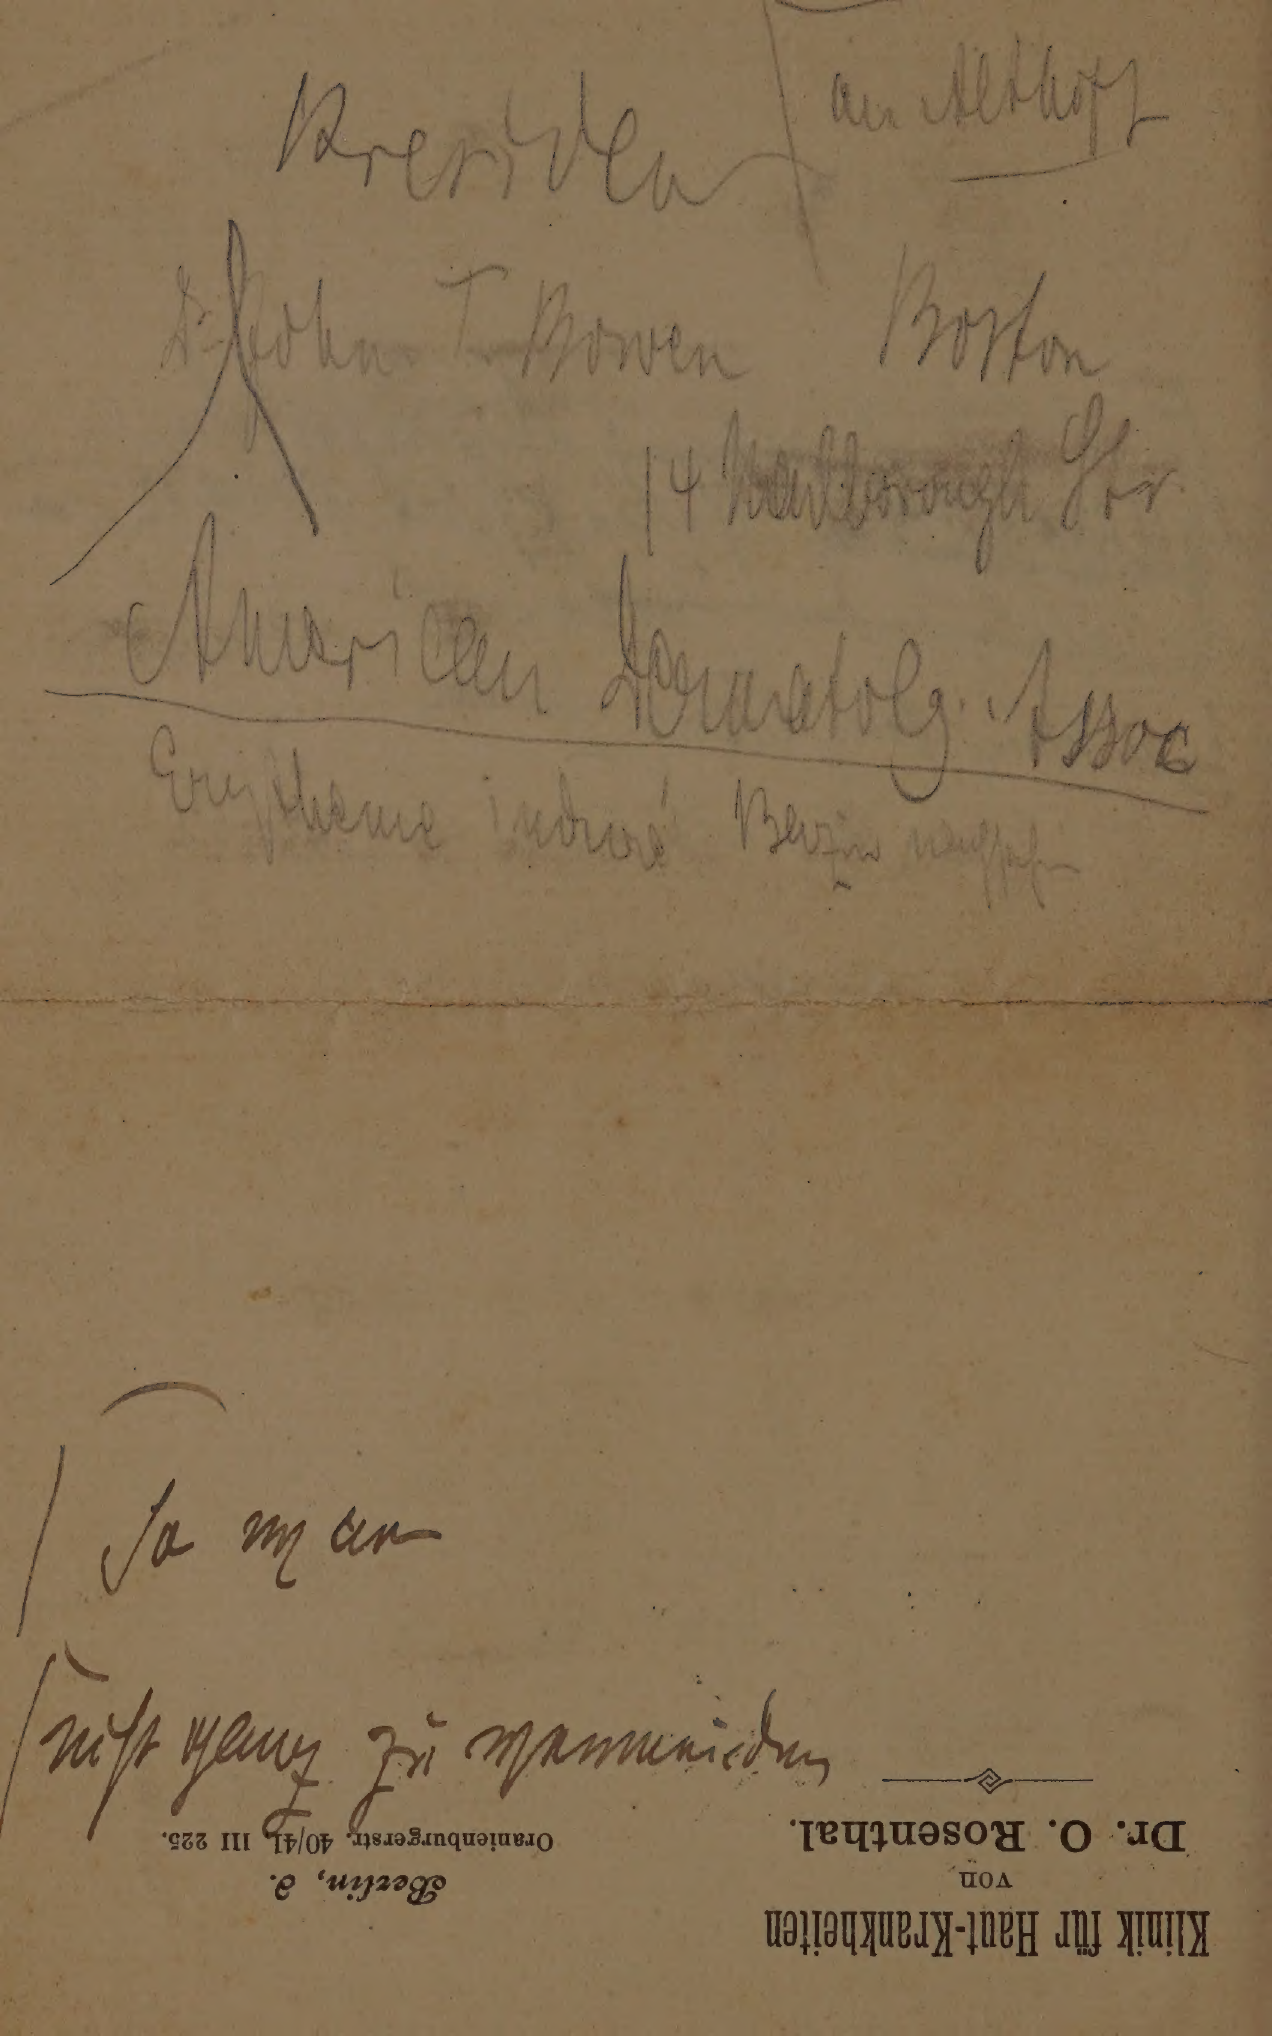 an Althoff
Dr. John T. Bowen Boston
14 Marlborough Str.
American Dermatolg. Assoc
Erytheme induré Bazin
nicht ganz zu vermeiden
Klinik für Haut-Krankheiten
von
Dr. O. Rosenthal.
Berlin, d.
Oranienburgerstr. 40/41 III 225.